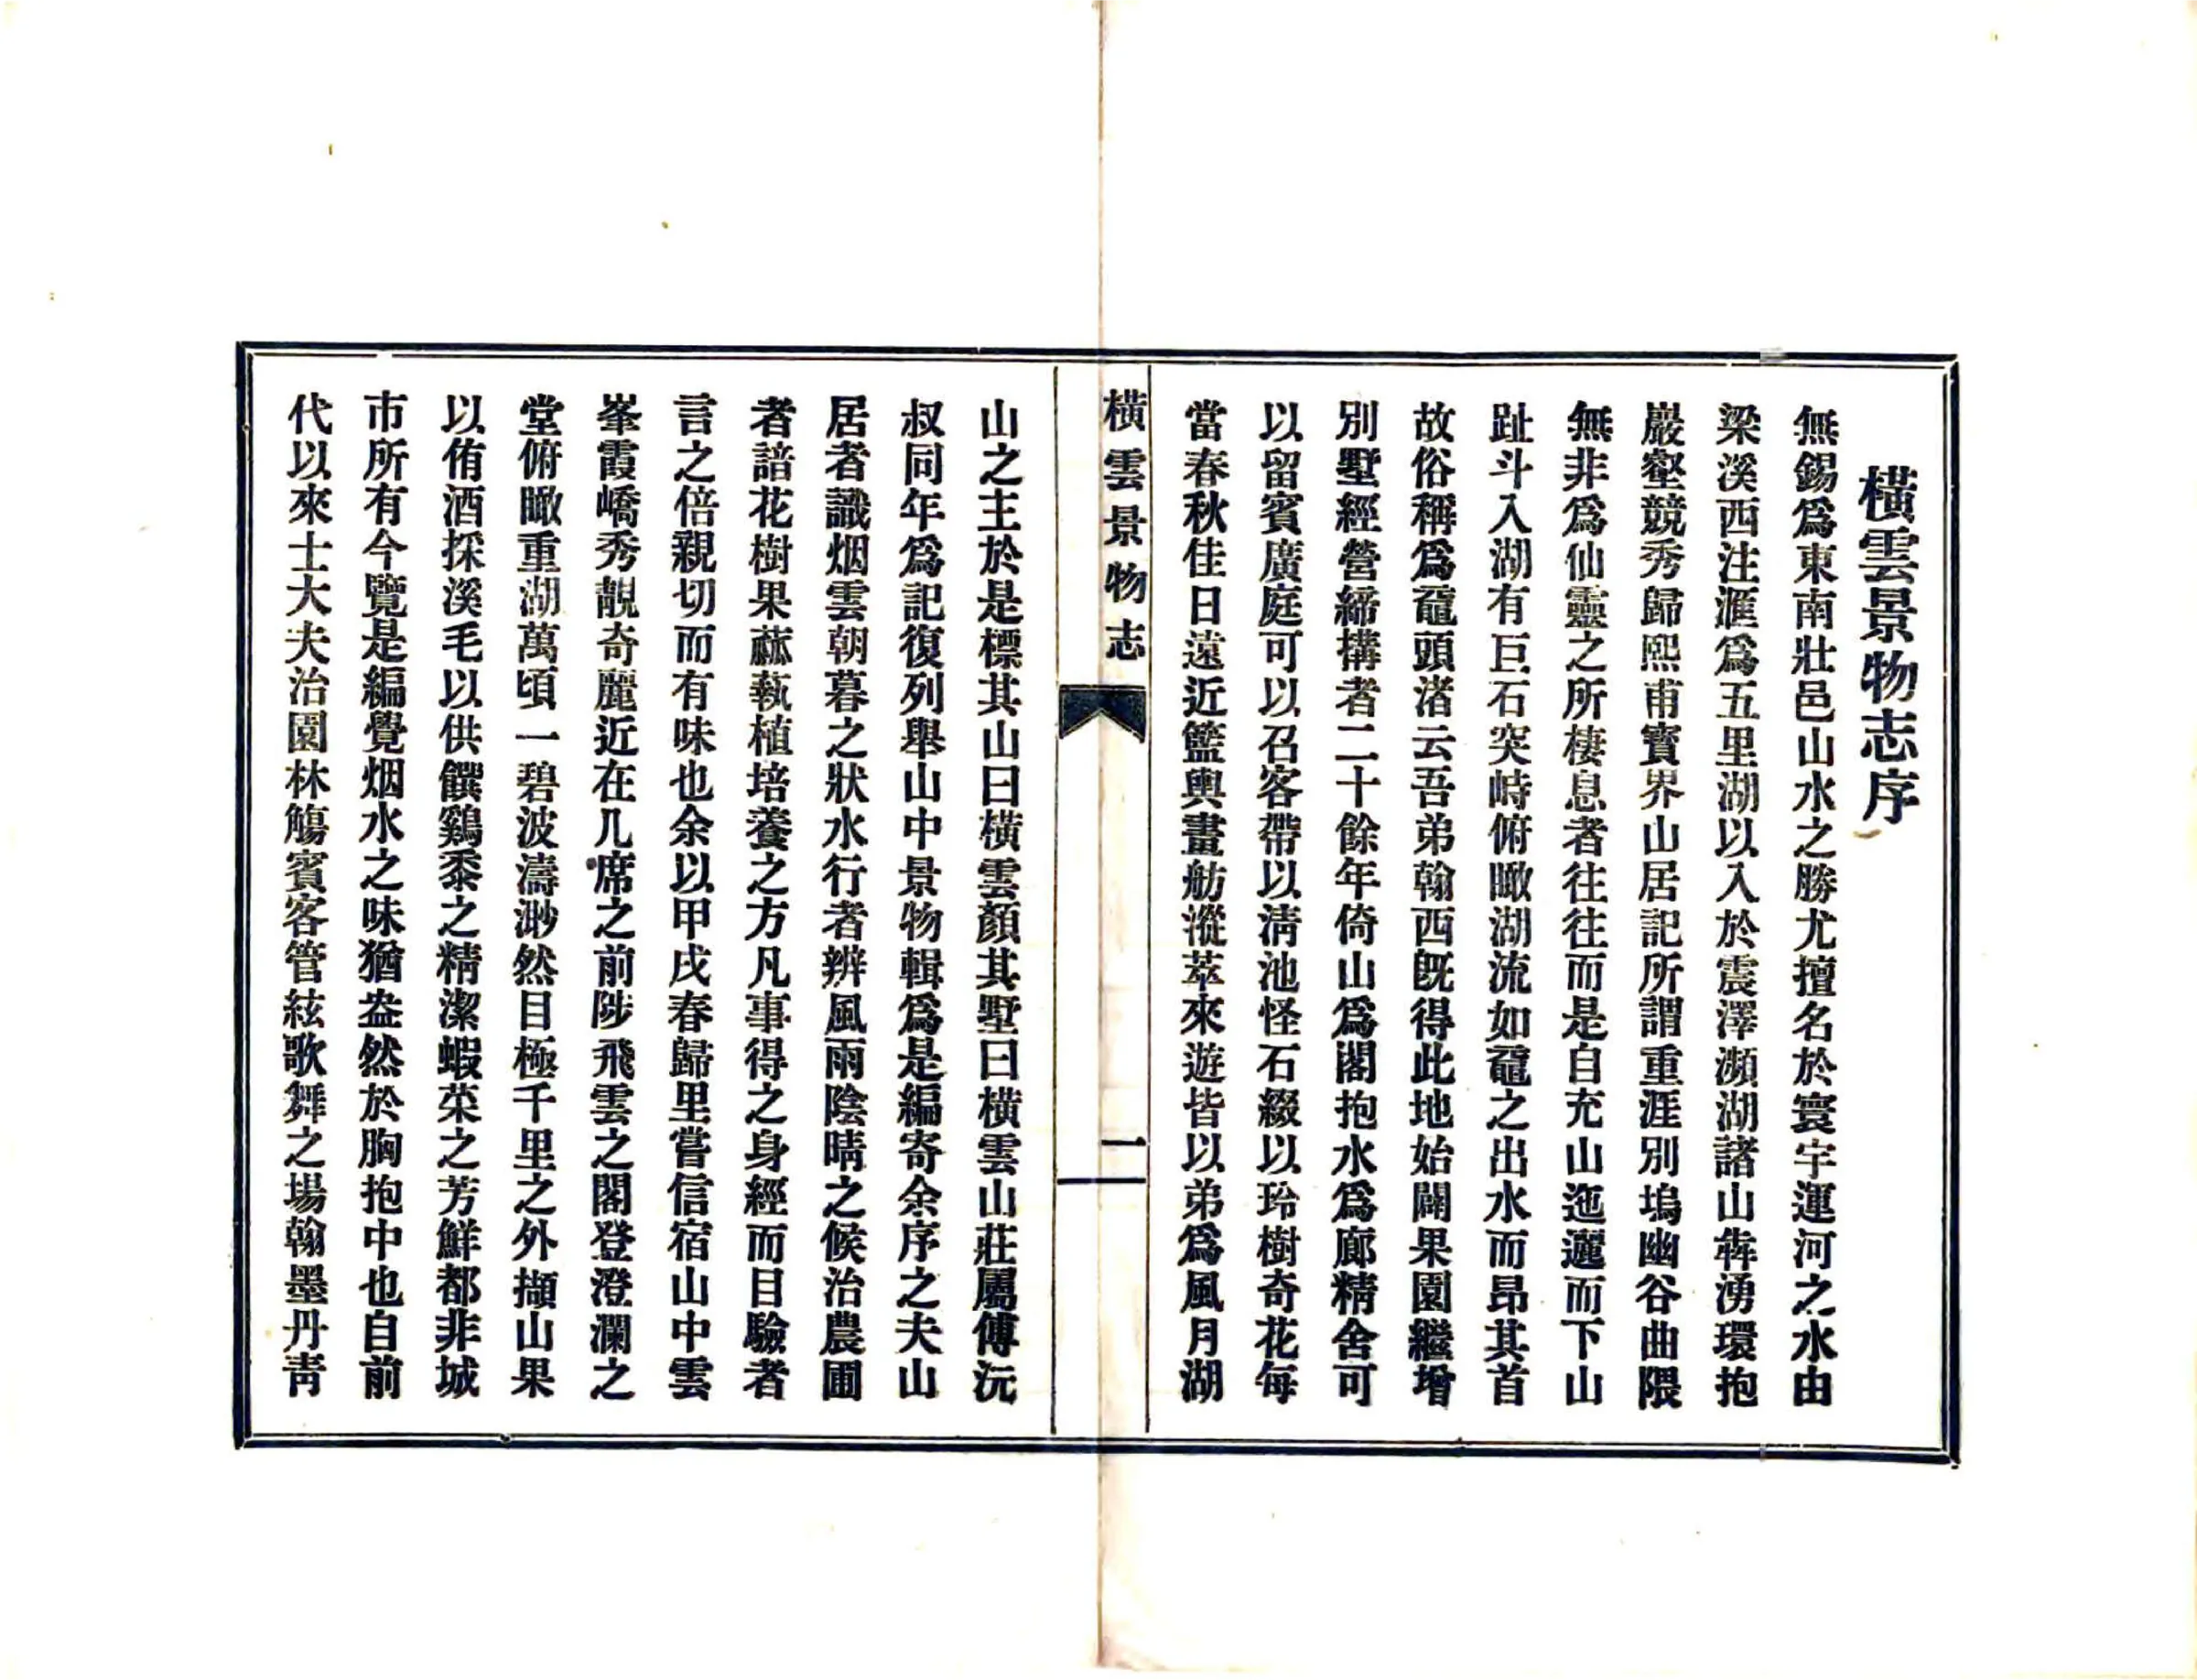 橫雲景物志序
無錫爲東南壯邑山水之勝尤擅名於寰宇運河之水由
梁溪西注滙爲五里湖以入於震澤瀕湖諸山犇湧環抱
巖壑競秀歸熙甫寳界山居記所謂重涯別塢幽谷曲隈
無非爲仙靈之所棲息者往往而是自充山迤邐而下山
趾斗入湖有巨石突峙俯瞰湖流如黿之出水而昂其首
故俗稱爲黿頭渚云吾弟翰西旣得此地始闢果園繼增
別墅經營締搆者二十餘年倚山爲閣抱水爲廊精舍可
以留賓廣庭可以召客帶以淸池怪石綴以玲樹奇花每
當春秋佳日遠近籃輿畫舫漎萃來遊皆以弟爲風月湖
橫雲景物志
一
山之主於是標其山曰橫雲顏其墅曰橫雲山莊屬傅沅
叔同年爲記復列舉山中景物輯爲是編寄余序之夫山
居者識烟雲朝暮之狀水行者辨風雨陰晴之候治農圃
者諳花樹果蓏執植培養之方凡事得之身經而目驗者
言之倍親切而有味也余以甲戌春歸里嘗信宿山中雲
峯霞嶠秀靚奇麗近在几席之前陟飛雲之閣登澄瀾之
堂俯瞰重湖萬頃一碧波濤渺然目極千里之外擷山果
以侑酒採溪毛以供饌鷄黍之精潔蝦菜之芳鮮都非城
市所有今覽是編覺烟水之味猶盎然於胸抱中也自前
代以來士大夫治園林觴賓客管絃歌舞之場翰墨丹靑